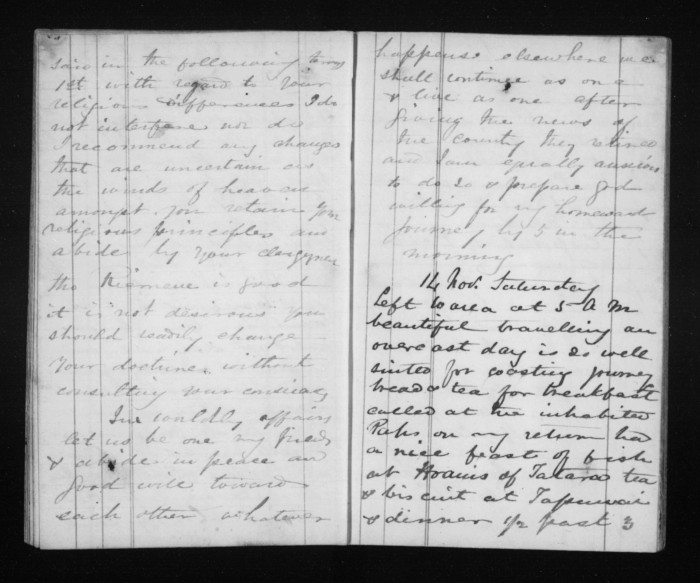 said in the following terms
1st with regard to your
religious differences I do
not interfere nor do
I recommend any changes
that are uncertain as
the winds of heaven
amongst you retain your
religious principles and
abide by your clergymen
the is good
it is not desirous you
should readily change
your doctrine without
consulting your
In worldly affairs
let us be one my friends
& abide in peace and
good will toward
each other whatever
happens elsewhere we
shall continue as one
& live as one after
giving the news of
the country they retired
and I am equally anxious
to do so & prepare God
willing for my homeward
journey by 5 in the
morning
14 Nov. Saturday
Left at 5 A M
beautiful travelling an
overcast day is so well
suited for coasting journey
bread & tea for breakfast
called at the inhabited
Pahs on my return had
a nice feast of fish
at of Tataroa tea
& biscuit at
& dinner ½ past 3